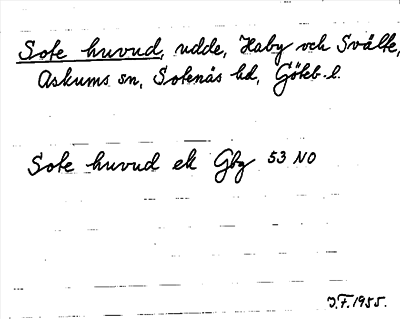 Sote huvud, udde, Haby och Svälte,
Askums sn, Sotenäs hd, Göteb. l.
Sote huvud ek Gbg 53 NO
J.F. 1955.